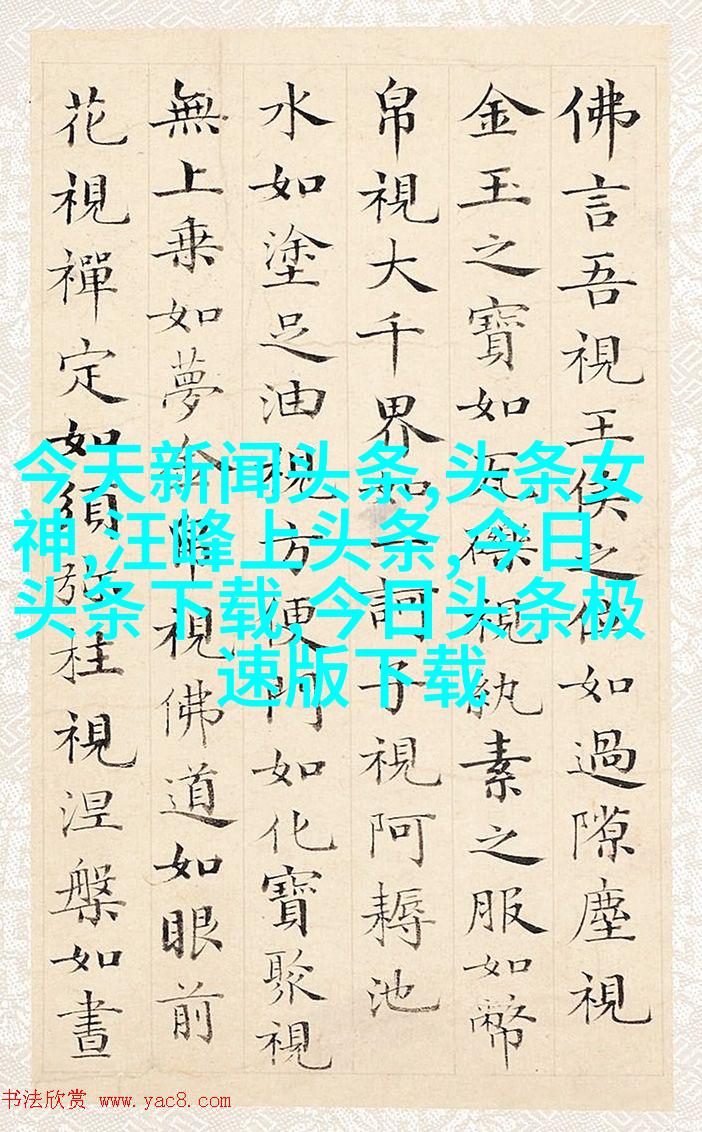 佛言吾視王侯之位如過隙塵視
金玉之寶如瓦礫視紈素之服如幣
帛視大千界如一訶子視阿耨池
水如塗足油視方便門如化寶聚視
無上乗如夢金帛視佛道如眼前
花視禪定如須弥柱視涅槃如晝
今天新闻头条,头条女
神,汪峰上头条,今日
头条下载,今日头条极
速版下载
书法欣赏 www.yac8.com